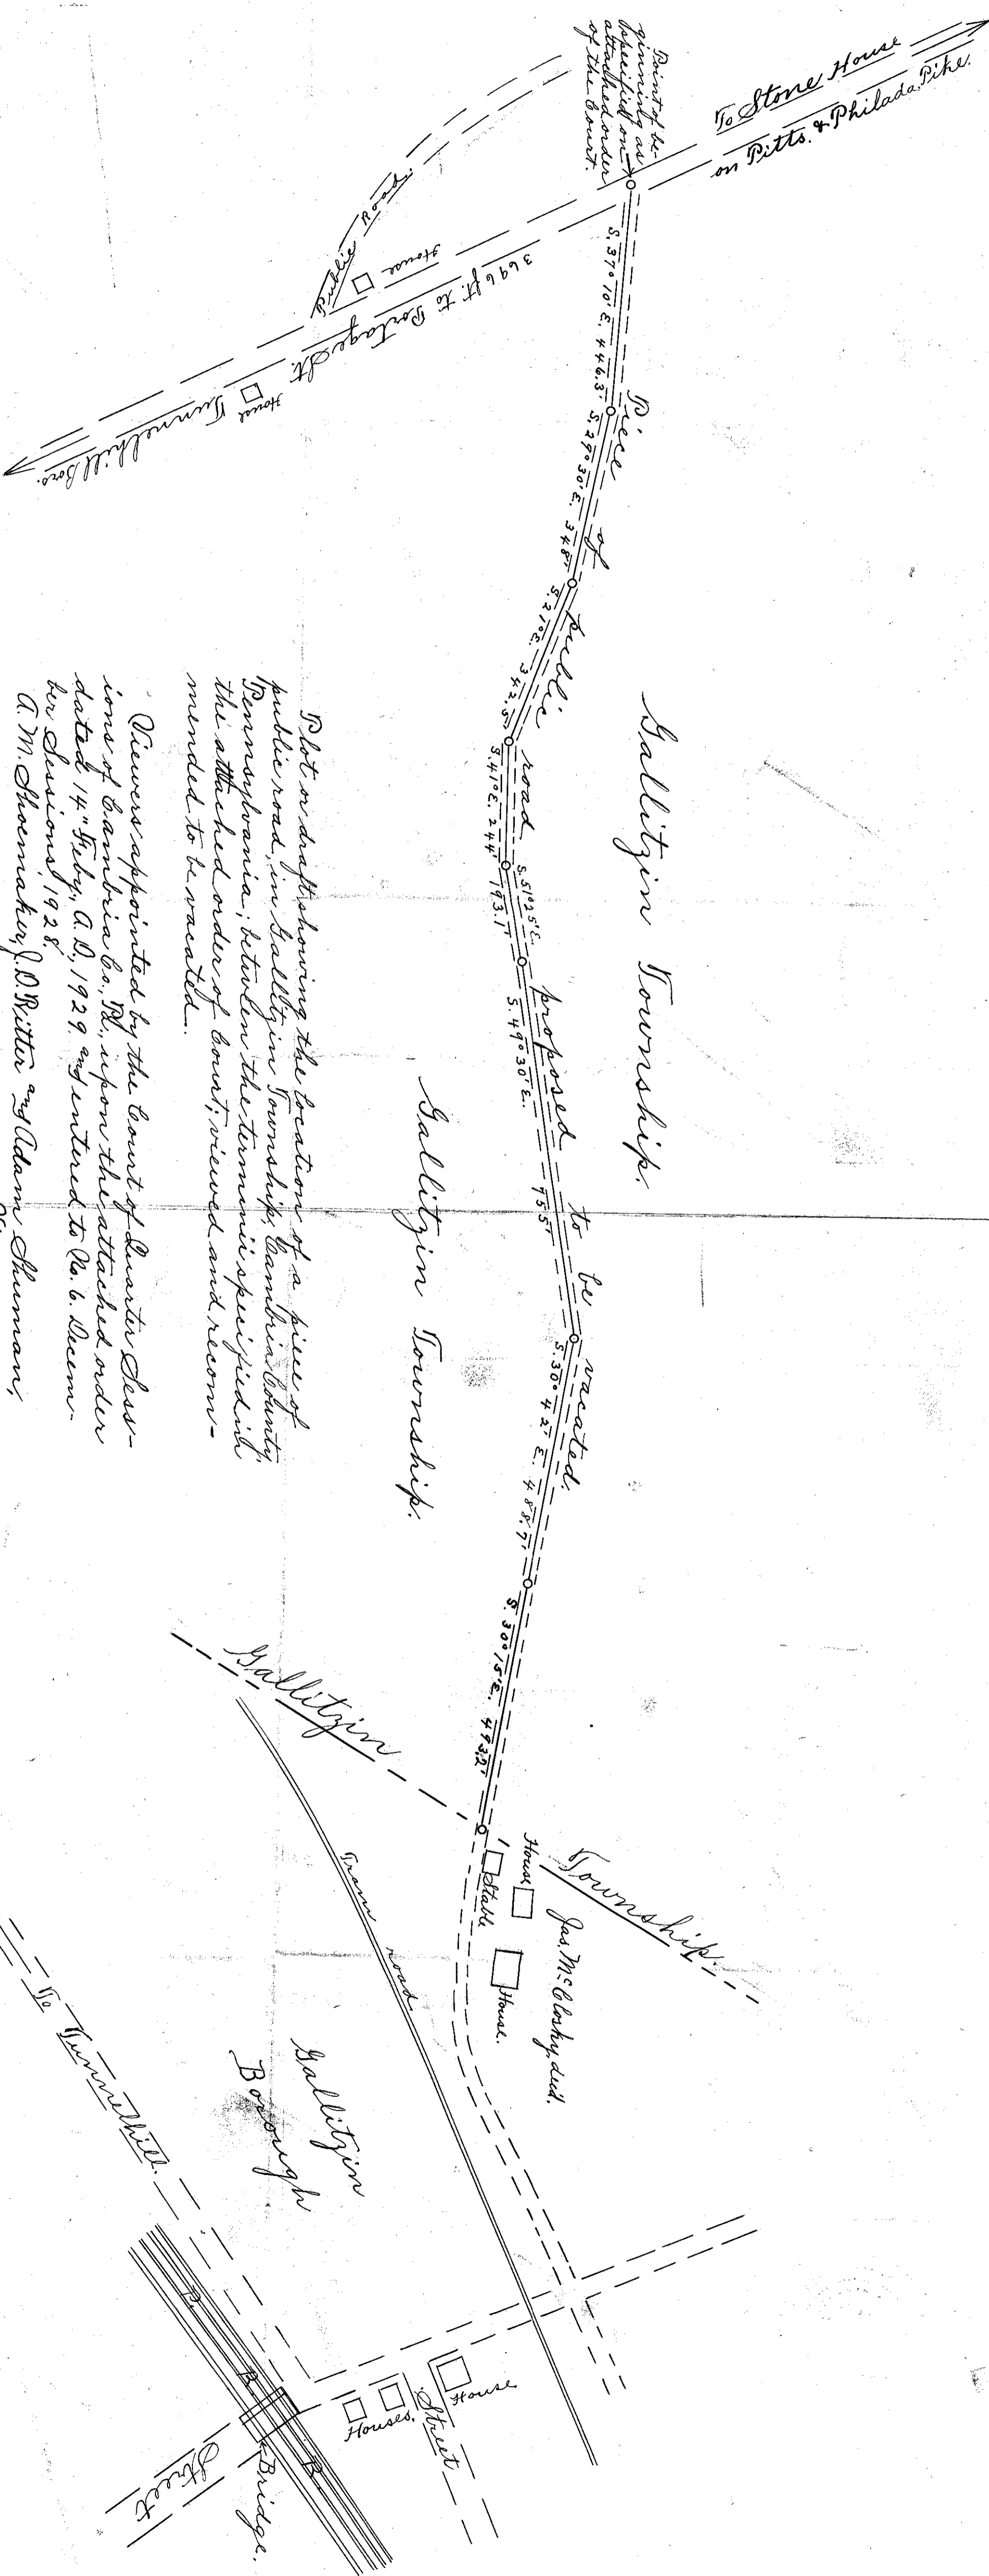 To Stone House
on Pitts. & Philada. Pike.
Point of be-
ginning as
specified on
attached order
of the Court.
Public Road
House
3696 ft. to Portage St.
House
Tunnelhill Boro.
S. 37° 10' E. 446.3'
S. 29° 30' E. 348'
S. 21° E. 342.5'
S. 41° E. 244'
S. 51° 25' E.
193.1'
S. 49° 30' E.
755'
S. 30° 42' E. 488.7'
S. 30° 15' E. 493.2'
Piece of public road proposed to be vacated.
Gallitzin Township.
Gallitzin Township.
Plot or draft showing the location of a piece of
public road, in Gallitzin Township, Cambria County,
Pennsylvania; between the terminii specified in
the attached order of Court; viewed and recom-
mended to be vacated.
Viewers appointed by the Court of Quarter Sess-
ions of Cambria Co., Pa., upon the attached order
dated 14" Feby., A.D., 1929 and entered to No. 6. Decem-
ber Sessions, 1928.
A. M. Shoemaker, J. D. Ritter and Adam Shuman,
Gallitzin Township.
House
Stable
House.
Jas. McClosky, decd.
Tram road
Gallitzin
Borough
To Tunnelhill.
P. R. R.
Bridge.
Street
Houses.
Street
House